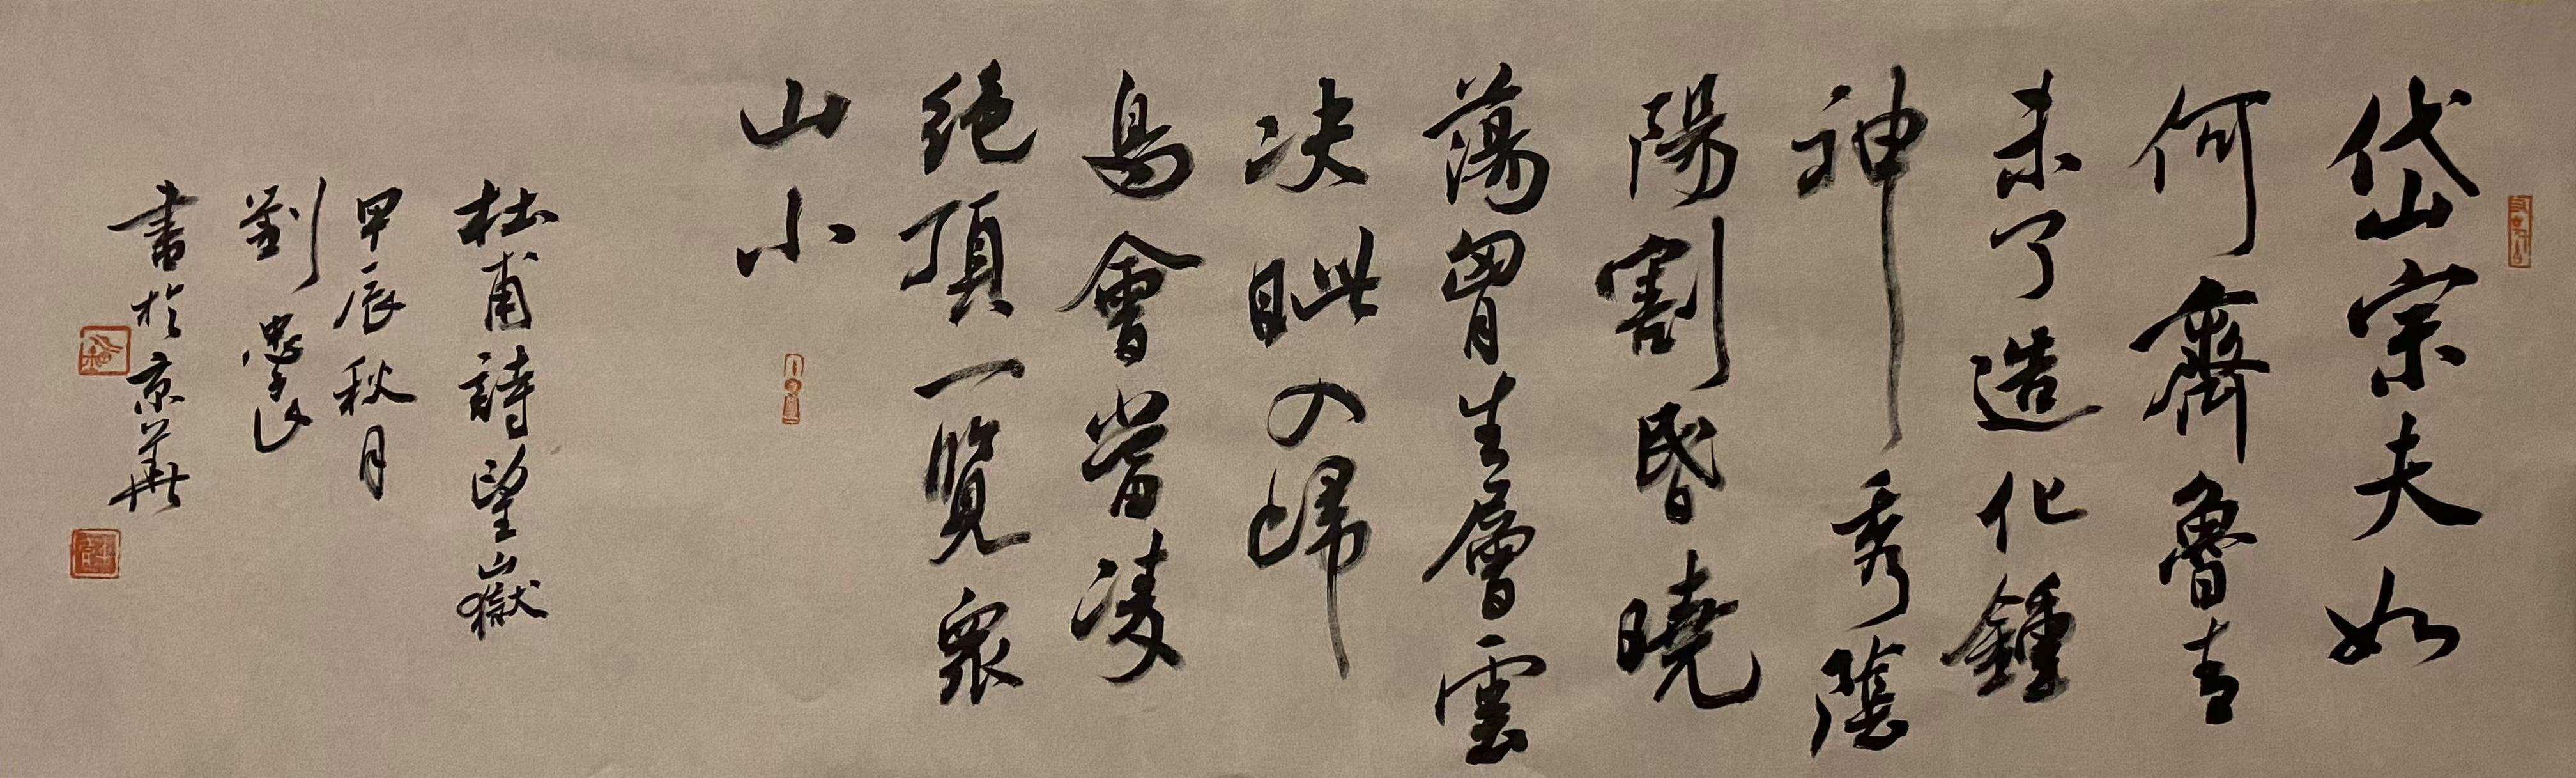 岱宗夫如
何齊魯青
未了造化鍾
神秀陰
陽割昏曉
蕩胷生層雲
决眦入歸
鳥會當凌
絕頂一覽衆
山小
杜甫詩望嶽
甲辰秋月
劉忠學
書於京華